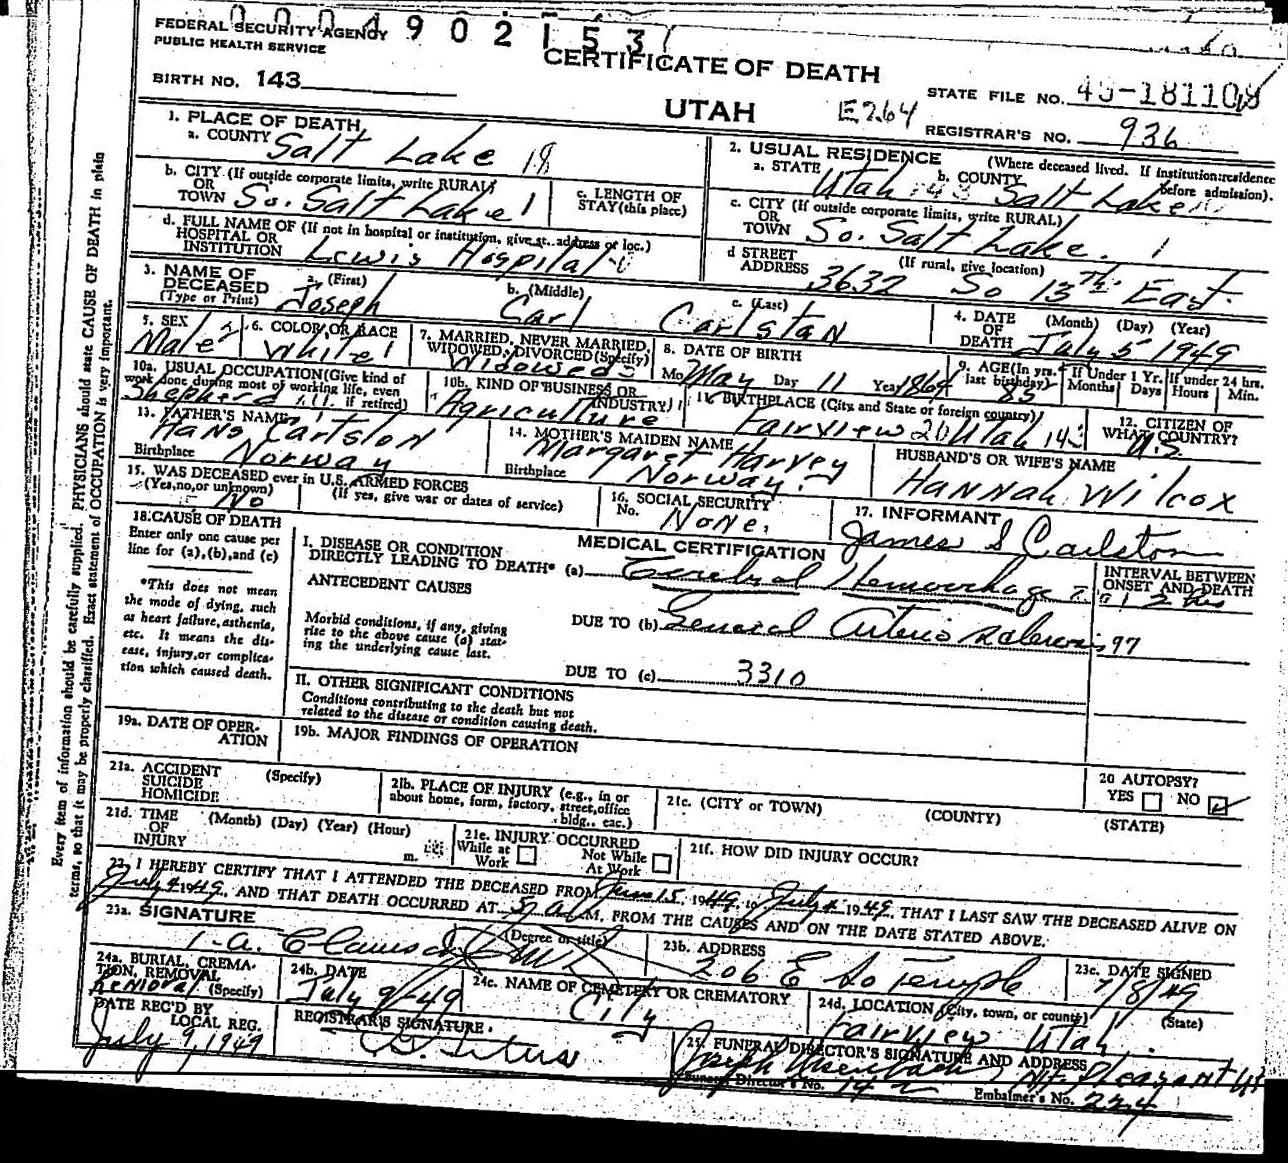 FEDERAL SECURITY AGENCY
PUBLIC HEALTH SERVICE
CERTIFICATE OF DEATH
BIRTH NO. 143
UTAH E264
STATE FILE NO.
REGISTRAR'S NO. 936
1. PLACE OF DEATH
a. COUNTY Salt Lake 18
b. CITY (If outside corporate limits, write RURAL)
OR
TOWN So. Salt Lake 1
c. LENGTH OF
STAY (this place)
d. FULL NAME OF (If not in hospital or institution, give st. address or loc.)
HOSPITAL OR
INSTITUTION Lewis Hospital
2. USUAL RESIDENCE (Where deceased lived. If institution: residence before admission).
a. STATE Utah b. COUNTY Salt Lake
c. CITY (If outside corporate limits, write RURAL)
OR
TOWN So. Salt Lake. 1
d STREET (If rural, give location)
ADDRESS 3632 So 13th East.
3. NAME OF
DECEASED
(Type or Print)
a. (First) Joseph
b. (Middle) Carl
c. (Last) Carlston
4. DATE (Month) (Day) (Year)
OF
DEATH July 5 1949
5. SEX
Male
6. COLOR OR RACE
White
7. MARRIED, NEVER MARRIED,
WIDOWED, DIVORCED (Specify)
Widowed
8. DATE OF BIRTH
Mo. May Day 11 Year 1864
9. AGE (In yrs. last birthday) 85
If Under 1 Yr.
Months Days
If under 24 hrs.
Hours Min.
10a. USUAL OCCUPATION (Give kind of
work done during most of working life, even
if retired)
Shepherd
10b. KIND OF BUSINESS OR
INDUSTRY
Agriculture
11. BIRTHPLACE (City and State or foreign country)
Fairview 20 Utah
12. CITIZEN OF
WHAT COUNTRY?
U.S.
13. FATHER'S NAME
Hans Carlston
Birthplace Norway
14. MOTHER'S MAIDEN NAME
Margaret Harvey
Birthplace Norway
HUSBAND'S OR WIFE'S NAME
Hannah Wilcox
15. WAS DECEASED ever in U.S. ARMED FORCES
(Yes, no, or unknown) (If yes, give war or dates of service)
No
16. SOCIAL SECURITY
No. None.
17. INFORMANT
James S Carlston
18. CAUSE OF DEATH
Enter only one cause per
line for (a), (b), and (c)
*This does not mean
the mode of dying, such
as heart failure, asthenia,
etc. It means the dis-
ease, injury, or complica-
tion which caused death.
MEDICAL CERTIFICATION
I. DISEASE OR CONDITION
DIRECTLY LEADING TO DEATH* (a) Cerebral Hemorrhage
INTERVAL BETWEEN
ONSET AND DEATH
12 hrs
ANTECEDENT CAUSES
Morbid conditions, if any, giving
rise to the above cause (a) stat-
ing the underlying cause last.
DUE TO (b) General Arterio Sclerosis 97
DUE TO (c) 3310
II. OTHER SIGNIFICANT CONDITIONS
Conditions contributing to the death but not
related to the disease or condition causing death.
19a. DATE OF OPER-
ATION
19b. MAJOR FINDINGS OF OPERATION
20 AUTOPSY?
YES NO
21a. ACCIDENT (Specify)
SUICIDE
HOMICIDE
21b. PLACE OF INJURY (e.g., in or
about home, form, factory, street, office
bldg., eac.)
21c. (CITY or TOWN) (COUNTY) (STATE)
21d. TIME (Month) (Day) (Year) (Hour)
OF
INJURY m.
21e. INJURY OCCURRED
While at Work Not While At Work
21f. HOW DID INJURY OCCUR?
22. I HEREBY CERTIFY THAT I ATTENDED THE DECEASED FROM June 15, 1949, to July 4 1949, THAT I LAST SAW THE DECEASED ALIVE ON
July 4 1949, AND THAT DEATH OCCURRED AT 5 A M., FROM THE CAUSES AND ON THE DATE STATED ABOVE.
23a. SIGNATURE (Degree or title)
23b. ADDRESS
206 E So Temple
23c. DATE SIGNED
7/8/49
24a. BURIAL, CREMA-
TION, REMOVAL
(Specify) Removal
24b. DATE
July 9-49
24c. NAME OF CEMETERY OR CREMATORY
City
24d. LOCATION (City, town, or county) (State)
Fairview Utah.
DATE REC'D BY
LOCAL REG.
July 9, 1949
REGISTRAR'S SIGNATURE
25. FUNERAL DIRECTOR'S SIGNATURE AND ADDRESS
Mt. Pleasant Ut
Funeral Director's No. 142
Embalmer's No. 224
Every item of information should be carefully supplied. PHYSICIANS should state CAUSE OF DEATH in plain
terms, so that it may be properly classified. Exact statement of OCCUPATION is very important.